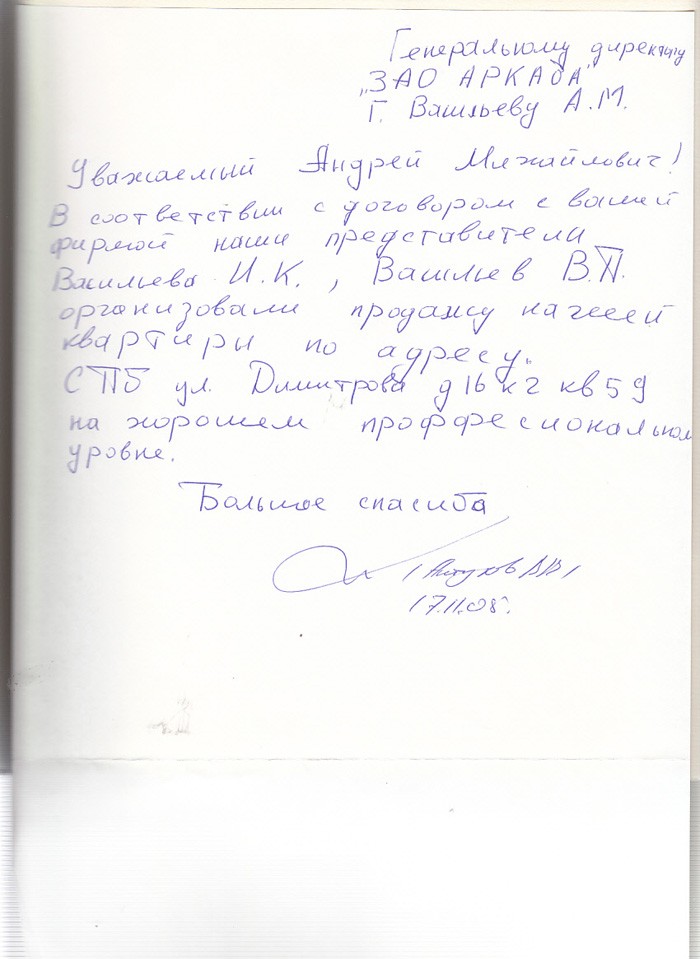 Генеральному директору
"ЗАО АРКАДА"
Г. Васильеву А.М.
Уважаемый Андрей Михайлович!
В соответствии с договором с вашей
фирмой наши представители
Васильева И.К., Васильев В.П.
организовали продажу нашей
квартиры по адресу:
СПБ ул. Димитрова д 16 к 2 кв 59
на хорошем проффесиональном
уровне.
Большое спасиба
17.11.08г.